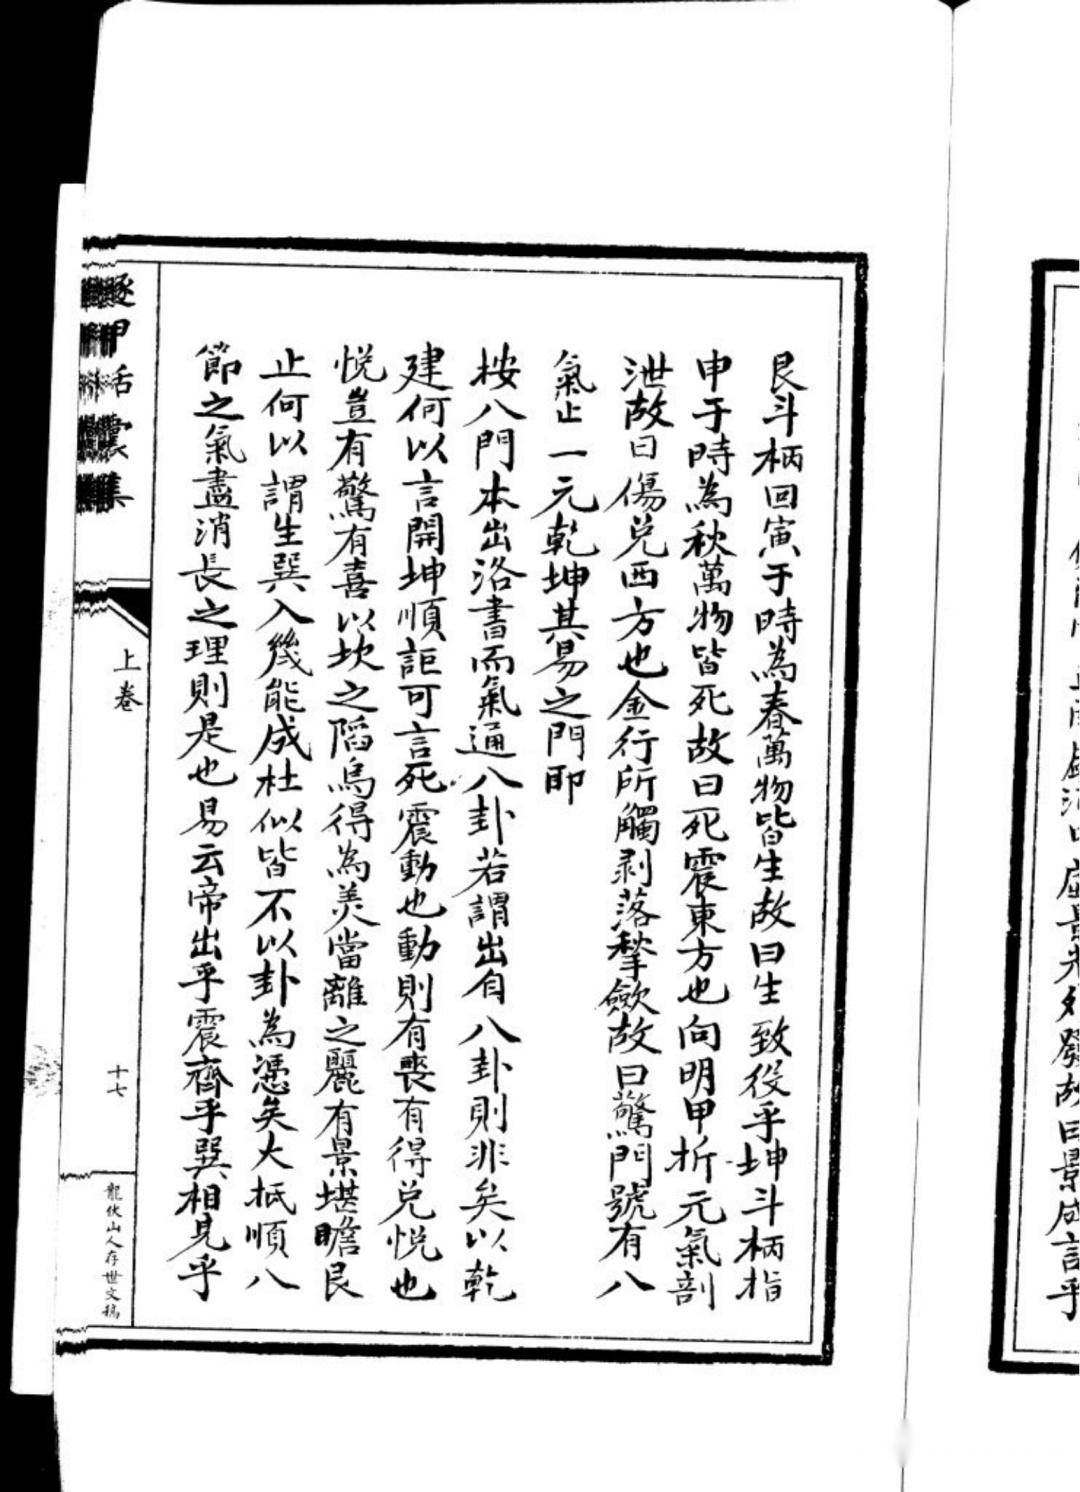 艮斗柄回寅于時為春萬物皆生故曰生致役乎坤斗柄指
申于時為秋萬物皆死故曰死震東方也向明甲折元氣剖
泄故曰傷兌西方也金行所觸剥落揫歛故曰驚門號有八
氣止一元乾坤其易之門耶
按八門本出洛書而氣通八卦若謂出自八卦則非矣以乾
建何以言開坤順詎可言死震動也動則有喪有得兌悦也
悦豈有驚有喜以坎之陷烏得為美當離之麗有景堪瞻艮
止何以謂生巽入幾能成杜似皆不以卦為憑矣大抵順八
節之氣盡消長之理則是也易云帝出乎震齊乎巽相見乎
遯甲括囊集
上卷
十七
龍伏山人存世文稿